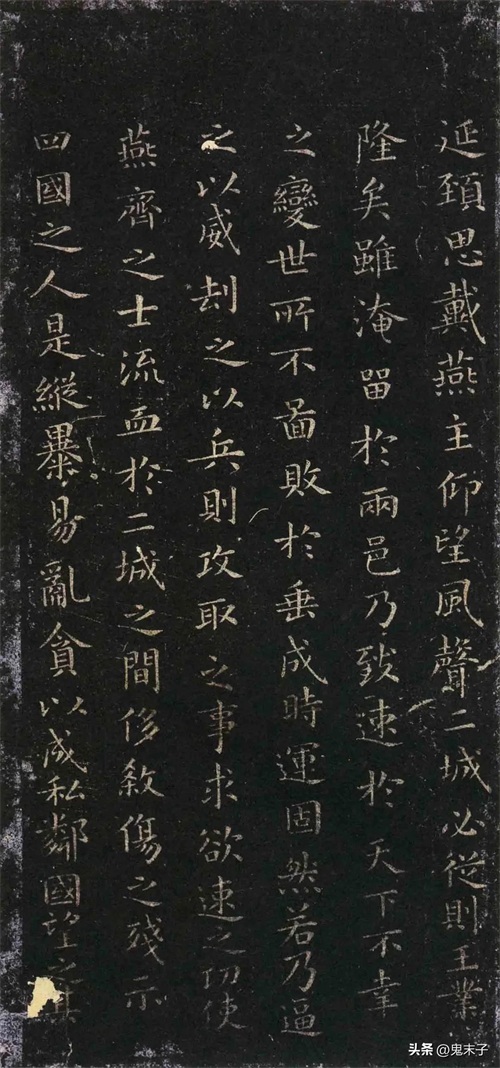 延頸思戴燕主仰望風聲二城必從則王業
隆矣雖淹留於兩邑乃致速於天下不幸
之變世所不啚敗於垂成時運固然若乃逼
之以威刧之以兵則攻取之事求欲速之功使
燕齊之士流血於二城之間侈殺傷之殘示
四國之人是縱暴易亂貪以成私鄰國望之其
头条 @鬼末子